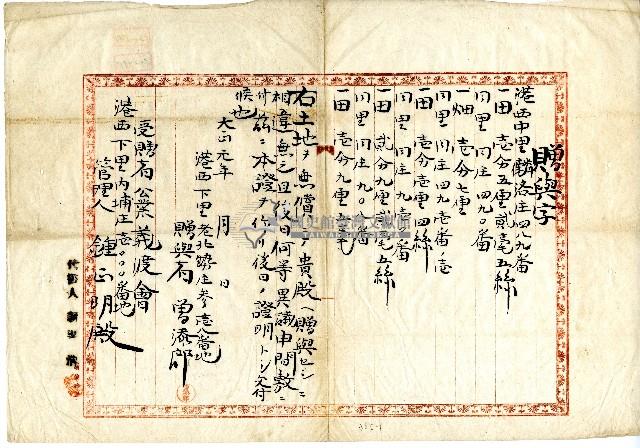 贈與字
港西中里麟洛庄四八九番
一田 壱分五厘貳毫五絲
同里 同庄 四九〇番
一畑 壱分七厘
同里 同庄 四九〇番ノ壱
一田 壱分壱厘四絲
同里 同庄 九〇番
一田 貳分九厘 毫五絲
同里 同庄 九〇番
一田 壱分九厘 毛
右土地ヲ無償ニテ貴殿ヘ贈與セシニ
相違無之且後日何等異議申間敷ニ
付茲ニ本證ヲ作リ後日ノ證明トシ交付
候也
大正元年 月 日
港西下里老北勢庄参壱番地
贈與者 曾添郎
受贈者 公業義渡會
港西下里內埔庄壱〇〇番地
管理人 鍾正明殿
代書人